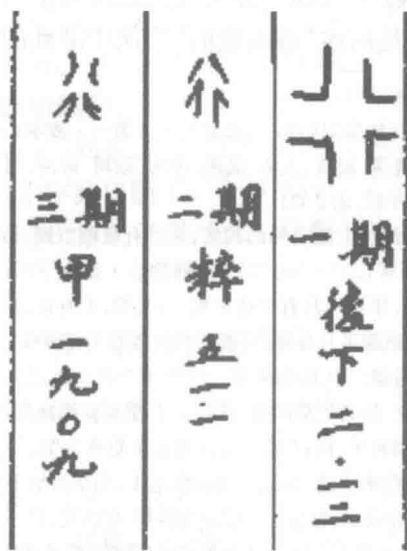 一期後下二·一二
二期粹五一二
三期甲一九〇九